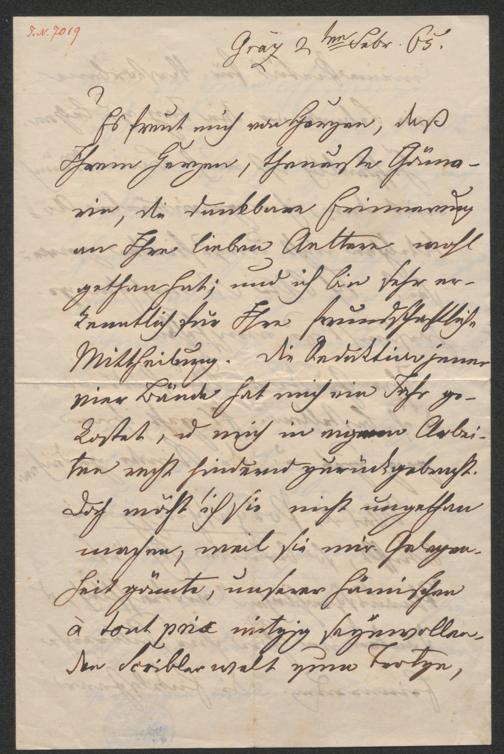 I.N. 7019
Graz 2ten Febr. 65.
Es freut mich von Herzen, daß
Ihrem Herzen, theuerste Gönne-
rin, die dankbare Erinnerung
an Ihre lieben Aeltern wohl
gethan hat; und ich bin sehr er-
kenntlich für Ihre freundschaftliche
Mittheilung. Die Redaktion jener
vier Bände hat mich ein Jahr ge-
kostet, u mich in eigenen Arbei-
ten recht hindernd zurückgebracht.
Doch möcht' ich sie nicht ungethan
machen, weil sie mir Gelegen-
heit gönnte, unserer hämischen
à tout prix witzig seynwollen-
den Scribler welt zum Trotze,